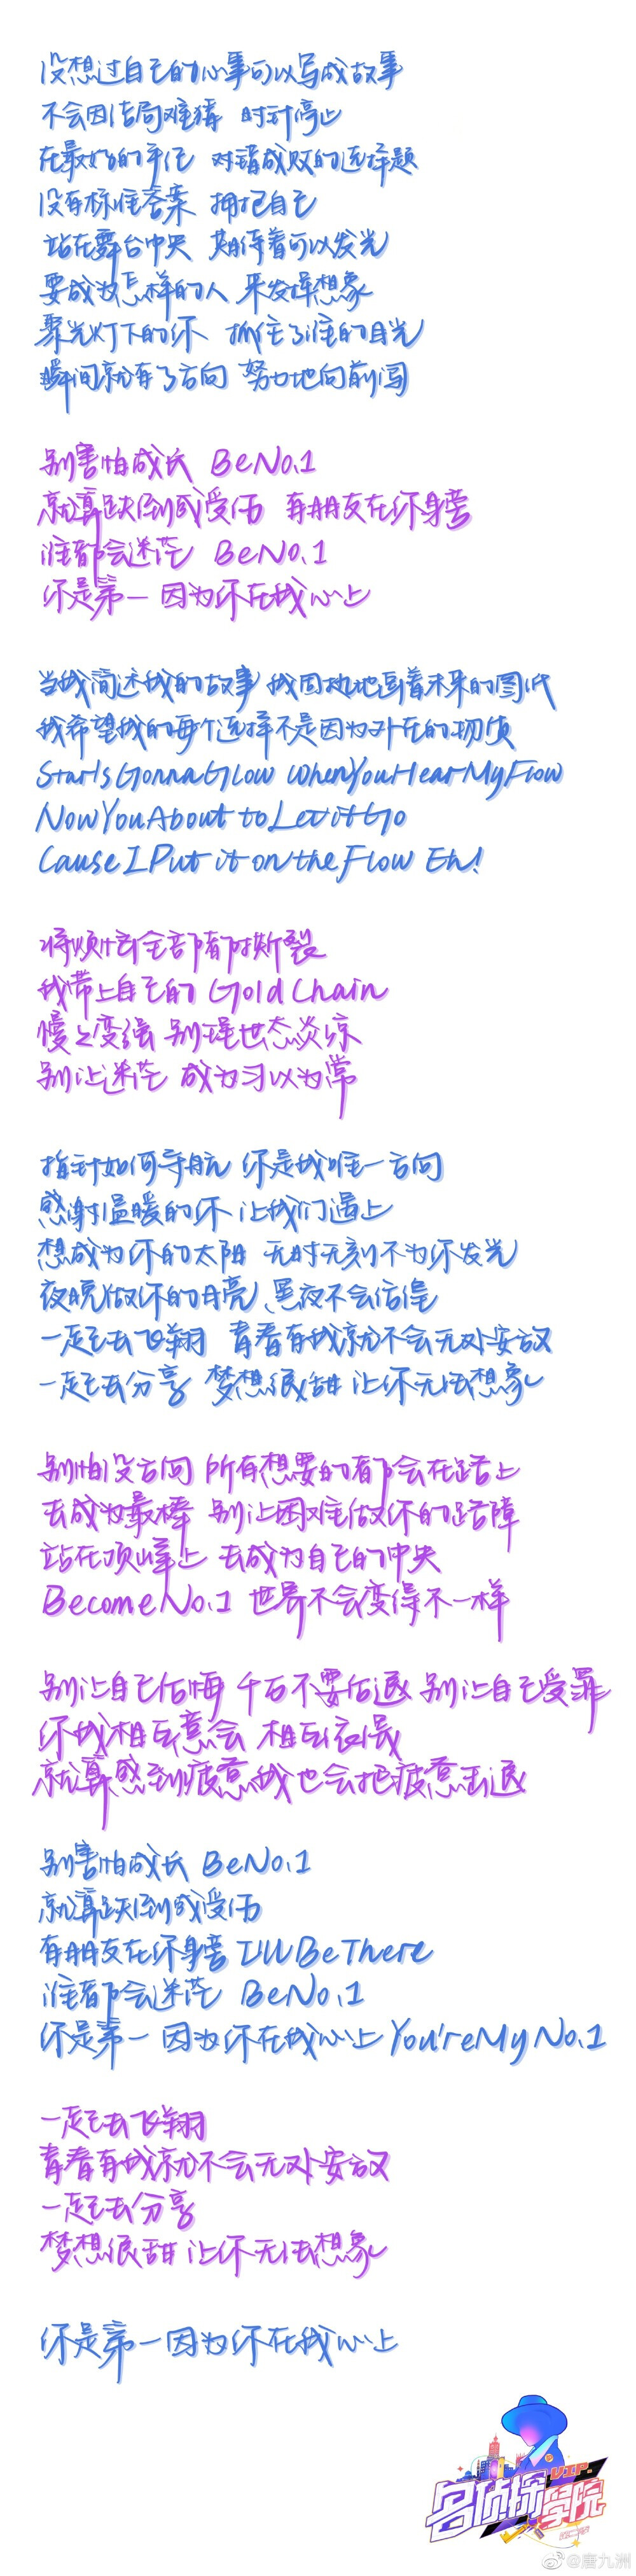 没想过自己的心事可以写成故事
不会因结局难猜 时针停止
在最好的年代 对错成败的选择题
没有标准答案 拥抱自己
站在舞台中央 期待着可以发光
要成为怎样的人 来发挥想象
聚光灯下的你 抓住了谁的目光
瞬间就有了方向 努力地向前闯
别害怕成长 Be No.1
就算跌倒或受伤 有朋友在你身旁
谁都会迷茫 Be No.1
你是第一 因为你在我心上
当我简述我的故事 我固执地画着未来的图纸
我希望我的每个选择不是因为外在的物质
Star Is Gonna Glow When You Hear My Flow
Now You About to Let it Go
Cause I Put it on the Flow Eh!
将烦恼全部都撕裂
我带上自己的 Gold Chain
慢慢变强 别理世态炎凉
别让迷茫 成为习以为常
指针如何导航 你是我唯一方向
感谢温暖的你 让我们遇上
想成为你的太阳 无时无刻不为你发光
夜晚做你的月亮 黑夜不会彷徨
一起去飞翔 青春有我就不会无处安放
一起去分享 梦想很甜 让你无法想象
别怕没方向 所有想要的都会在路上
去成为最棒 别让困难做你的路障
站在顶峰上 去成为自己的中央
Become No.1 世界不会变得不一样
别让自己后悔 千万不要后退 别让自己受罪
你我相互意会 相互依偎
就算感到疲惫我也会把疲惫击退
别害怕成长 Be No.1
就算跌倒或受伤
有朋友在你身旁 I'll Be There
谁都会迷茫 Be No.1
你是第一 因为你在我心上 You're My No.1
一起去飞翔
青春有我就不会无处安放
一起去分享
梦想很甜 让你无法想象
你是第一因为你在我心上
VIP
名侦探学院
@唐九洲